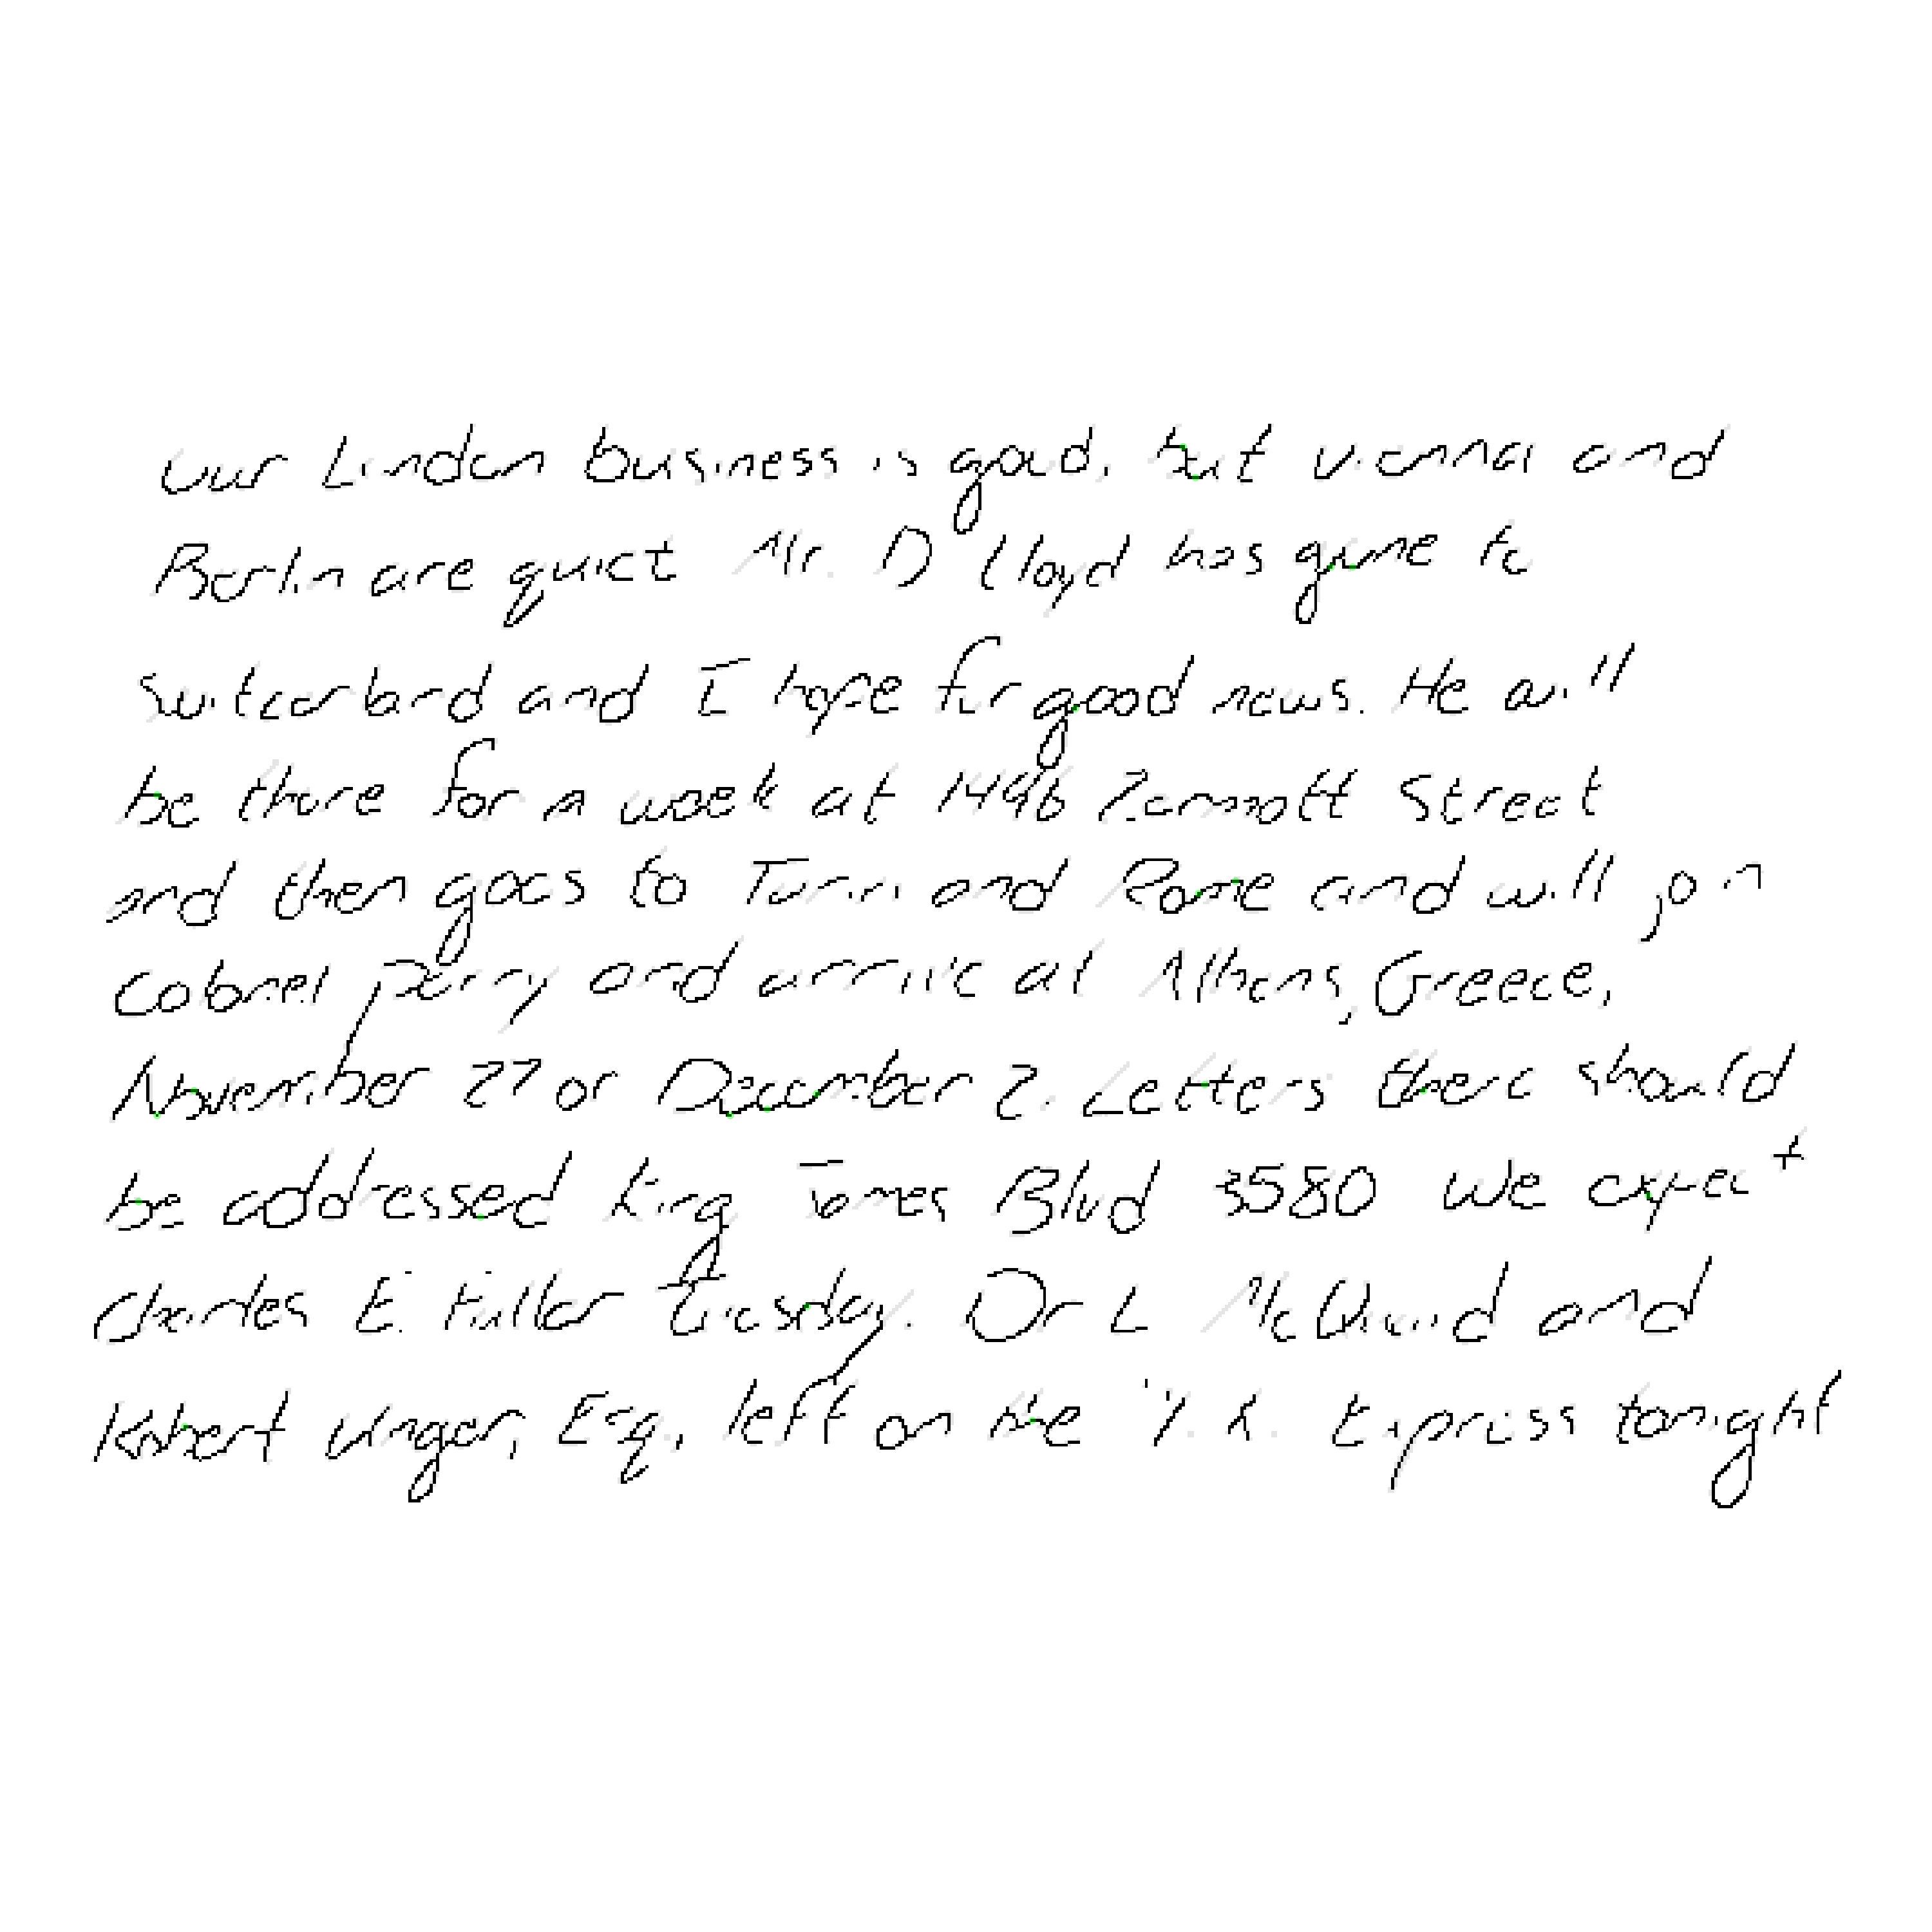 Our London business is good, but Vienna and
Berlin are quiet Mr. D Lloyd has gone to
Switzerland and I hope for good news. He will
be there for a week at 1496 Zermott Street
and then goes to Turin and Rome and will join
Colonel Parry and arrive at Athens, Greece,
November 27 or December 2. Letters there should
be addressed King James Blvd 3580 We expect
Charles E. Fuller Tuesday. Dr L McQuaid and
Robert Unger, Esq., left on the Express tonight